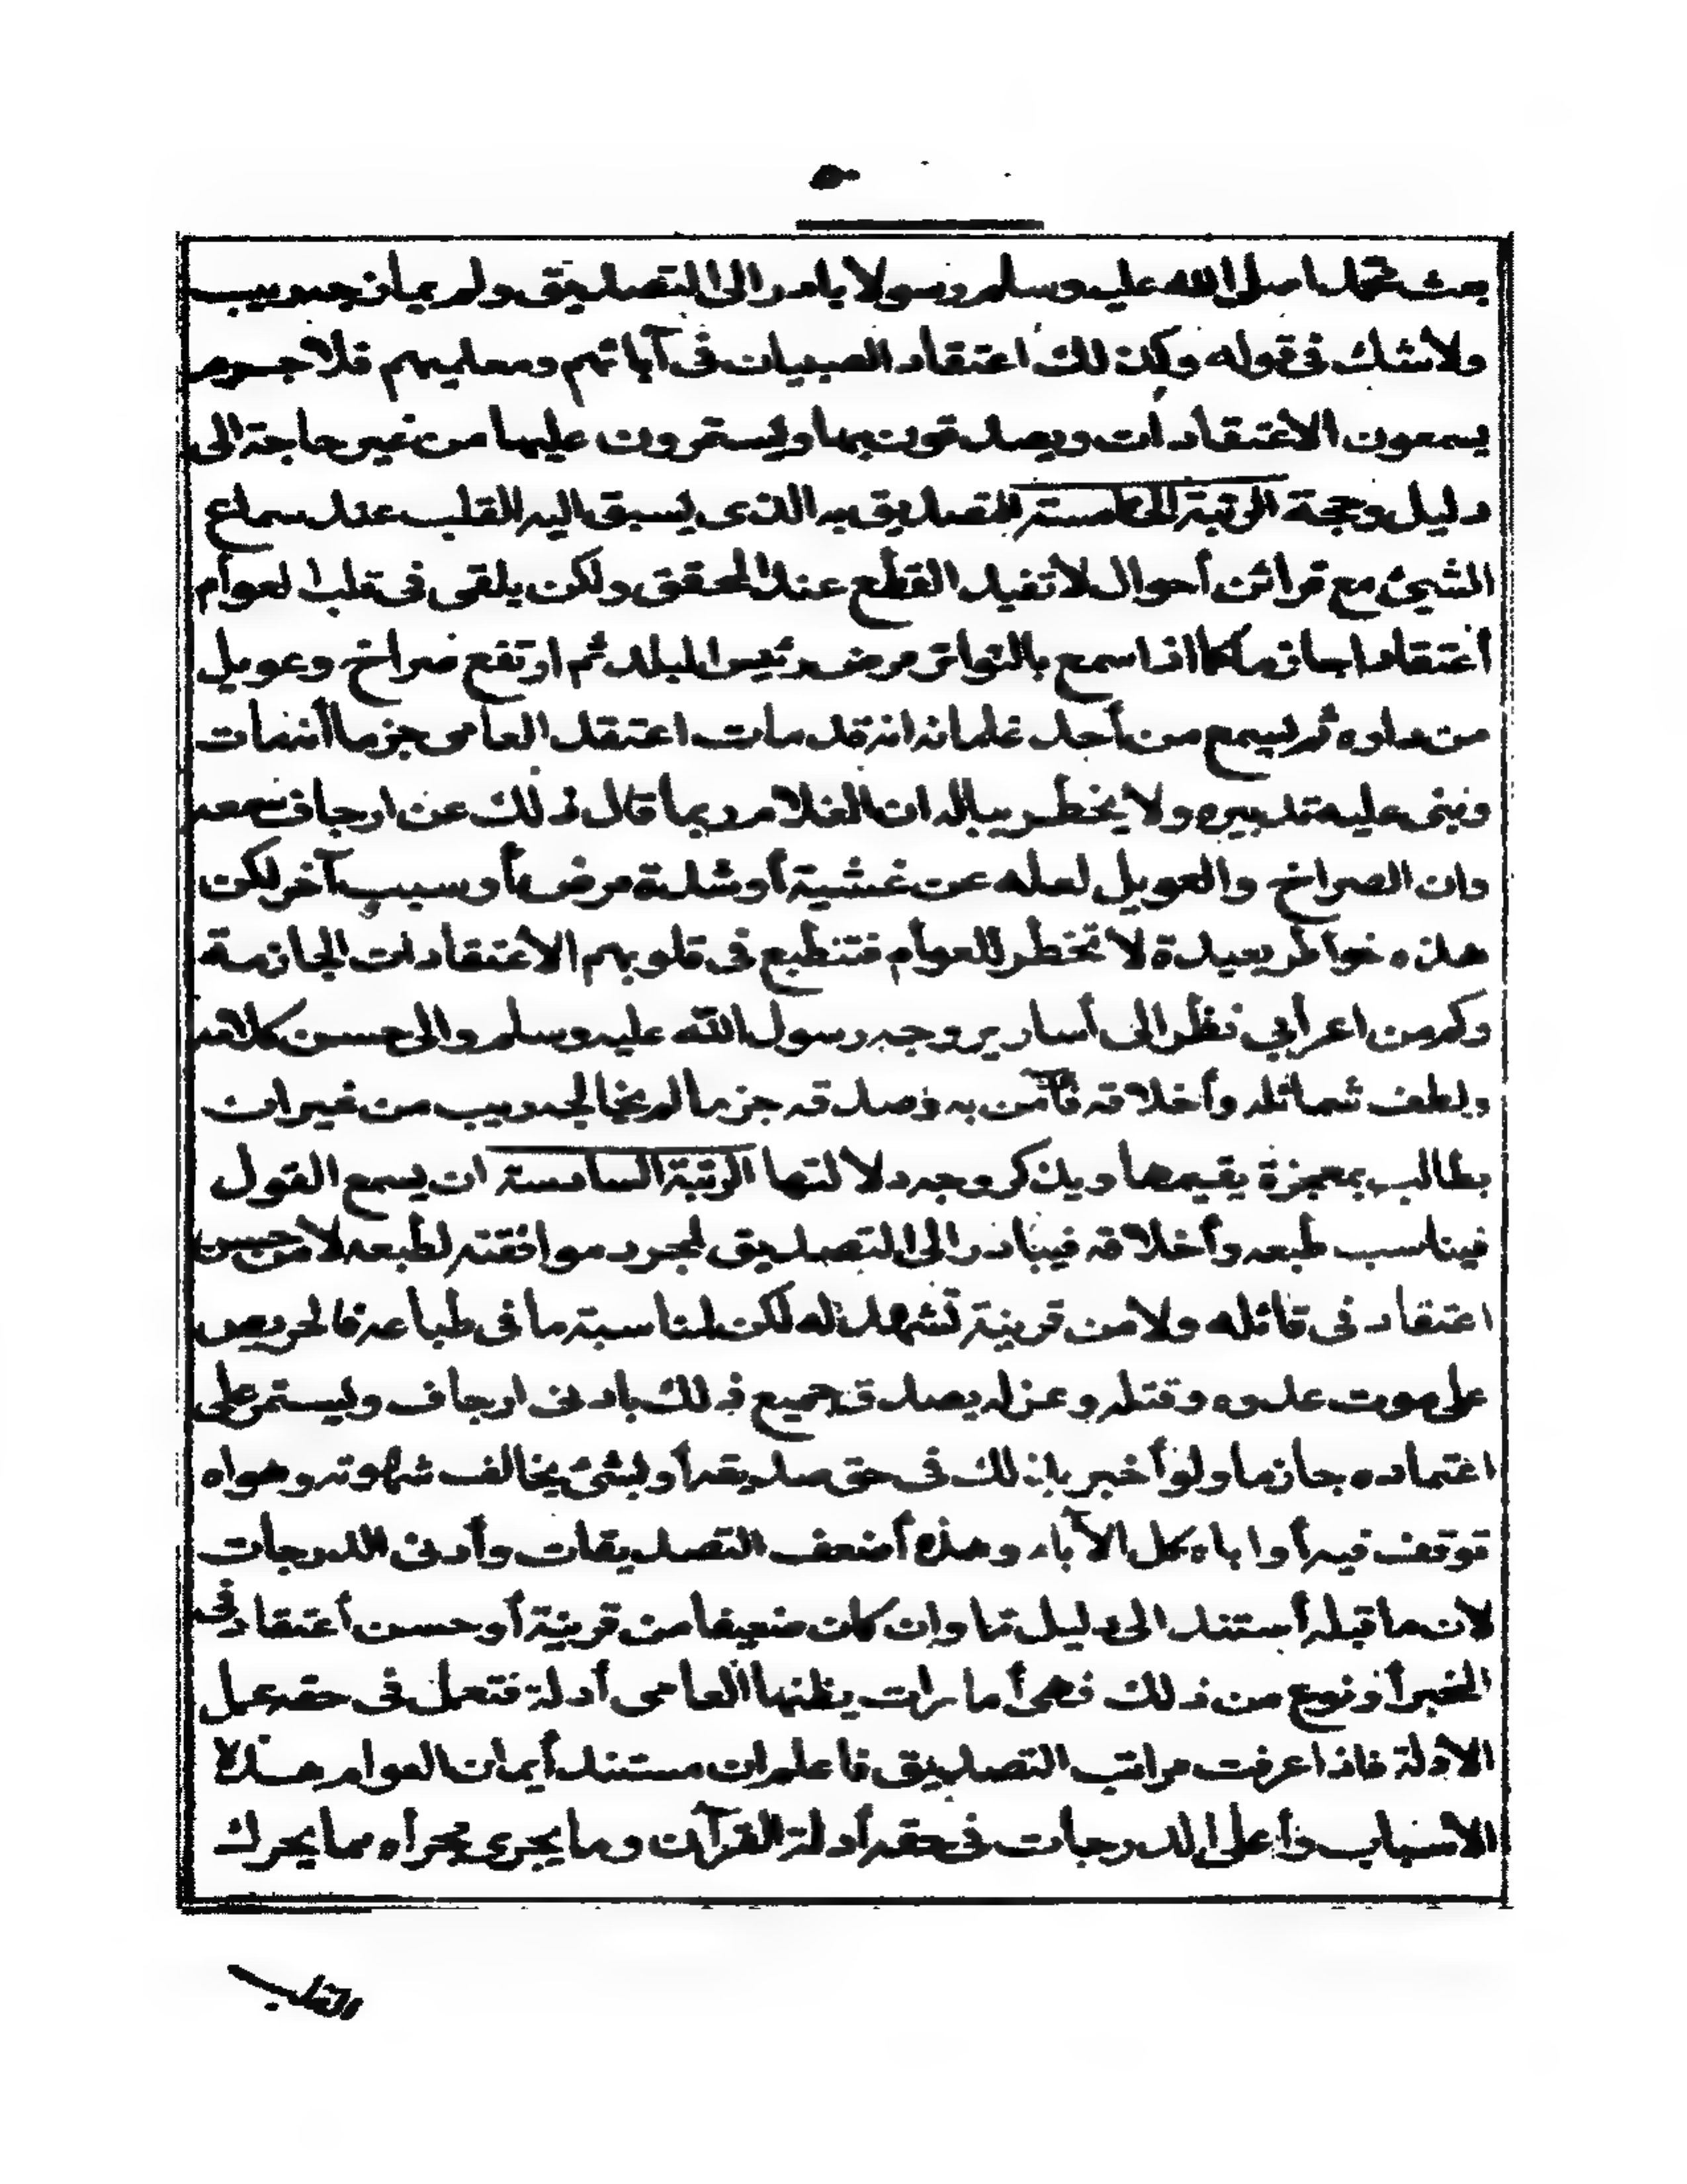 بعث محمدا صلى الله عليه وسلم رسولا بادر الى التصديق ولم يمازجه ريب
ولا شك في قوله وكذلك اعتقاد الصبيان في آبائهم ومعلميهم فلا جرم
يسمعون الاعتقادات ويصدقون بها ويستمرون عليها من غير حاجة الى
دليل وحجة الرتبة الخامسة التصديق به الذى يسبق اليه القلب عند سماع
الشيئ مع قرائن أحوال لا تفيد القطع عند المحقق ولكن يلقى في قلب العوام
أعتقادا جازما كما اذا سمع بالتواتر مرض رئيس البلد ثم ارتفع صراخ وعويل
من داره ثم يسمع من أحد غلمانه انه قد مات اعتقد العامى جزما أنه مات
وبنى عليه تدبيره ولا يخطر بباله ان الغلام ربما قال ذلك عن ارجاف سمعه
وان الصراخ والعويل لعله عن غشية أو شدة مرض أو سبب آخر لكن
هذه خواطر بعيدة لا تخطر للعوام فتنطبع في قلوبهم الأعتقادات الجازمة
وكم من اعرأبي نظر الى أسارير وجه رسول الله عليه وسلم والى حسن كلامه
ولطف شمائله وأخلاقه فآمن به وصدقه جزما لم يخالجه ريب من غير ان
يطالب بمعجزة يقيمها ويذكر وجه دلالتها الرتبة السادسة ان يسمع القول
فيناسب طبعه وأخلاقه فيبادر الى التصديق لمجرد موافقته لطبعه لا من حسن
اعتقاد في قائله ولا من قرينة تشهد له لكن لمناسبة ما في طباعه فالحريص
على موت عدوه وقتله وعزله يصدق جميع ذلك بادنى ارجاف ويستمر على
اعتماده جازما ولو أخبر بذلك في حق صديقه أو بشئ يخالف شهوته وهواه
توقف فيه أو اباه كل الآباء وهذه أضعف التصديقات وأدنى الدرجات
لان ما قبله أستند الى دليل ما وان كان ضعيفا من قرينة أو حسن أعتقاد في
المخبر أو نوع من ذلك فهى أمارات يظنها العامى أدلة فتعمل في حقه عمل
الادلة فاذا عرفت مراتب التصديق فاعلم ان مستند أيمان العوام هذه
الاسباب وأعلى الدرجات في حقه أدلة القرآن وما يجرى مجرأه مما يحرك
القلب